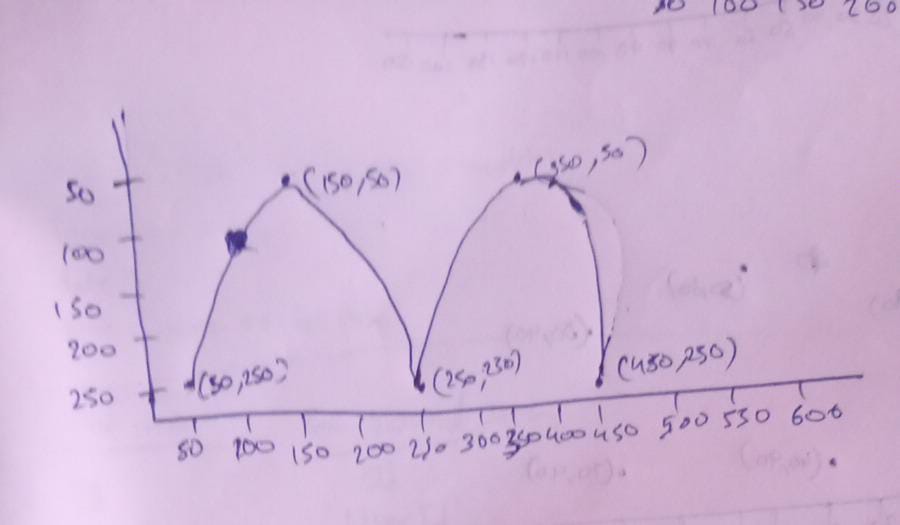 50 100 150 200
(150,50)
(350,50)
50
100
150
200
250
(50,250)
(250,250)
(450,250)
50 100 150 200 250 300 350 400 450 500 550 600